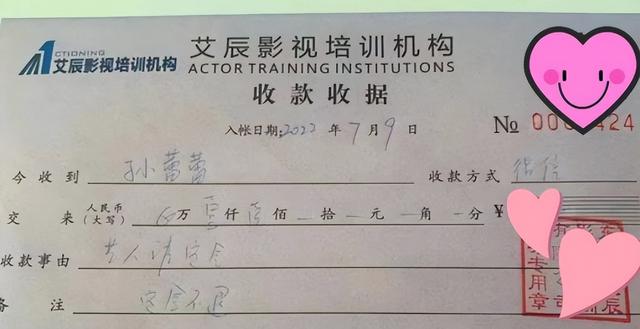 CTIONING
艾辰影视培训机构
艾辰影视培训机构
ACTOR TRAINING INSTITUTIONS
收款收据
入帐日期:2022年7月9日 № 000 424
今收到 孙蕾蕾 收款方式 微信
交来 人民币(大写) 万 仟 佰 拾 元 角 分 ¥
收款事由 艺人请定金
备注 定金不退
专用章